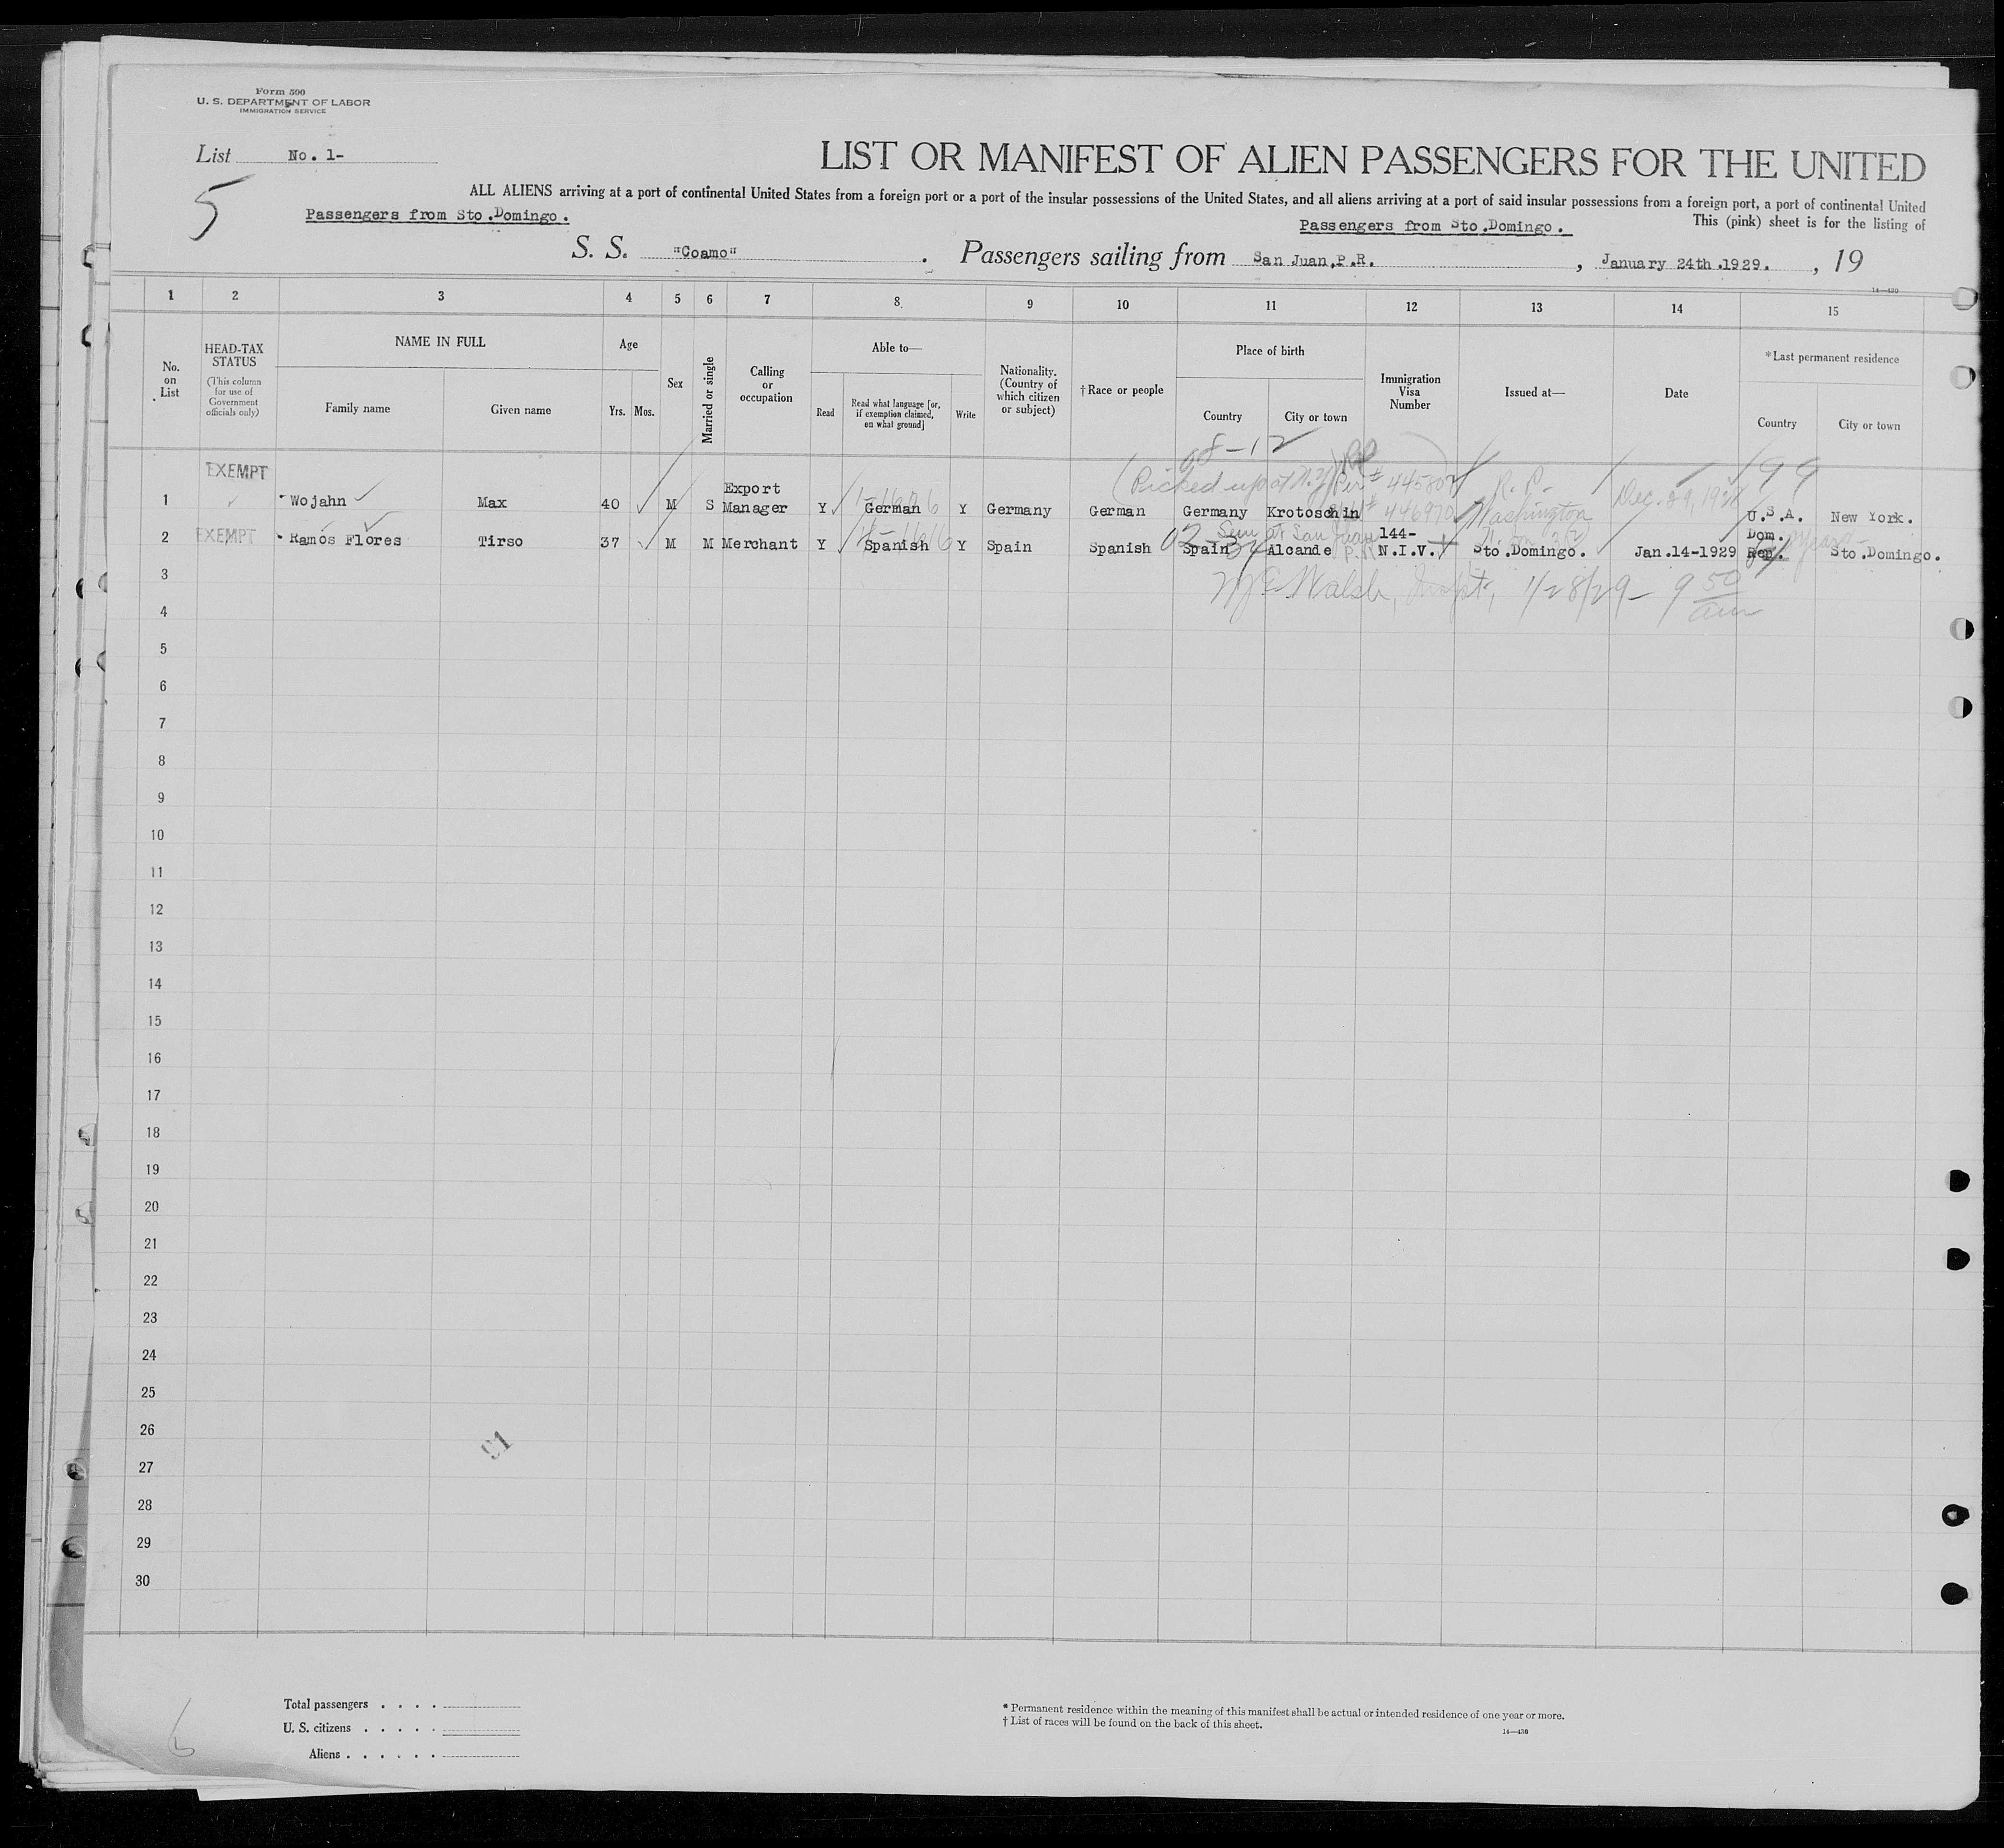 Form 500
U. S. DEPARTMENT OF LABOR
IMMIGRATION SERVICE
List No. 1-
LIST OR MANIFEST OF ALIEN PASSENGERS FOR THE UNITED
5
ALL ALIENS arriving at a port of continental United States from a foreign port or a port of the insular possessions of the United States, and all aliens arriving at a port of said insular possessions from a foreign port, a port of continental United
Passengers from Sto.Domingo. Passengers from Sto.Domingo. This (pink) sheet is for the listing of
S. S. "Coamo" . Passengers sailing from San Juan,P.R. , January 24th.1929. , 19
1 2 3 4 5 6 7 8 9 10 11 12 13 14 15
No. on List
HEAD-TAX STATUS
(This column for use of Government officials only)
NAME IN FULL
Family name Given name
Age
Yrs. Mos.
Sex
Married or single
Calling or occupation
Able to—
Read
Read what language [or, if exemption claimed, on what ground]
Write
Nationality. (Country of which citizen or subject)
†Race or people
Place of birth
Country City or town
Immigration Visa Number
Issued at—
Date
*Last permanent residence
Country City or town
98-12
(Picked up at N.Y.) 99
1 EXEMPT Wojahn Max 40 M S Export Manager Y German Y Germany German Germany Krotoschin R.P. Washington Dec. 29, 1928 U.S.A. New York.
2 EXEMPT Ramos Flores Tirso 37 M M Merchant Y Spanish Y Spain Spanish Spain Alcande 144- N.I.V. Sto.Domingo. Jan.14-1929 Dom. Rep. Sto.Domingo.
Walsh, 1/28/29- 9 50 am
3
4
5
6
7
8
9
10
11
12
13
14
15
16
17
18
19
20
21
22
23
24
25
26
27
28
29
30
91
Total passengers . . . .
U. S. citizens . . . . .
Aliens . . . . . .
* Permanent residence within the meaning of this manifest shall be actual or intended residence of one year or more.
† List of races will be found on the back of this sheet.